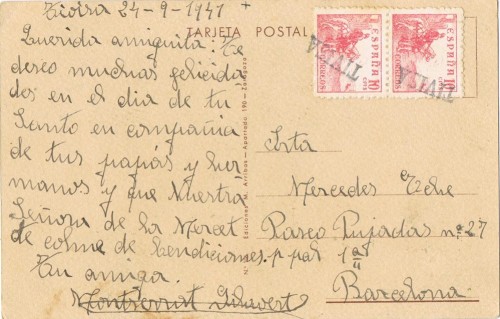 Tivisa 24-9-1941 +
TARJETA POSTAL
Querida amiguita: Te
deseo muchas felicida
des en el dia de tu
Santo en compañia
de tus papás y her
manos y que Nuestra
Señora de la Merced
te colme de bendiciones.
Tu amiga.
Montserrat
Ediciones M. Arribas - Apartado 190 - Zaragoza
ESPAÑA
CORREOS
10 CTS
ESPAÑA
CORREOS
10 CTS
TIVISA
TIVISA
Srta
Mercedes
Paseo Pujadas nº 27
p pal 1ª
Barcelona